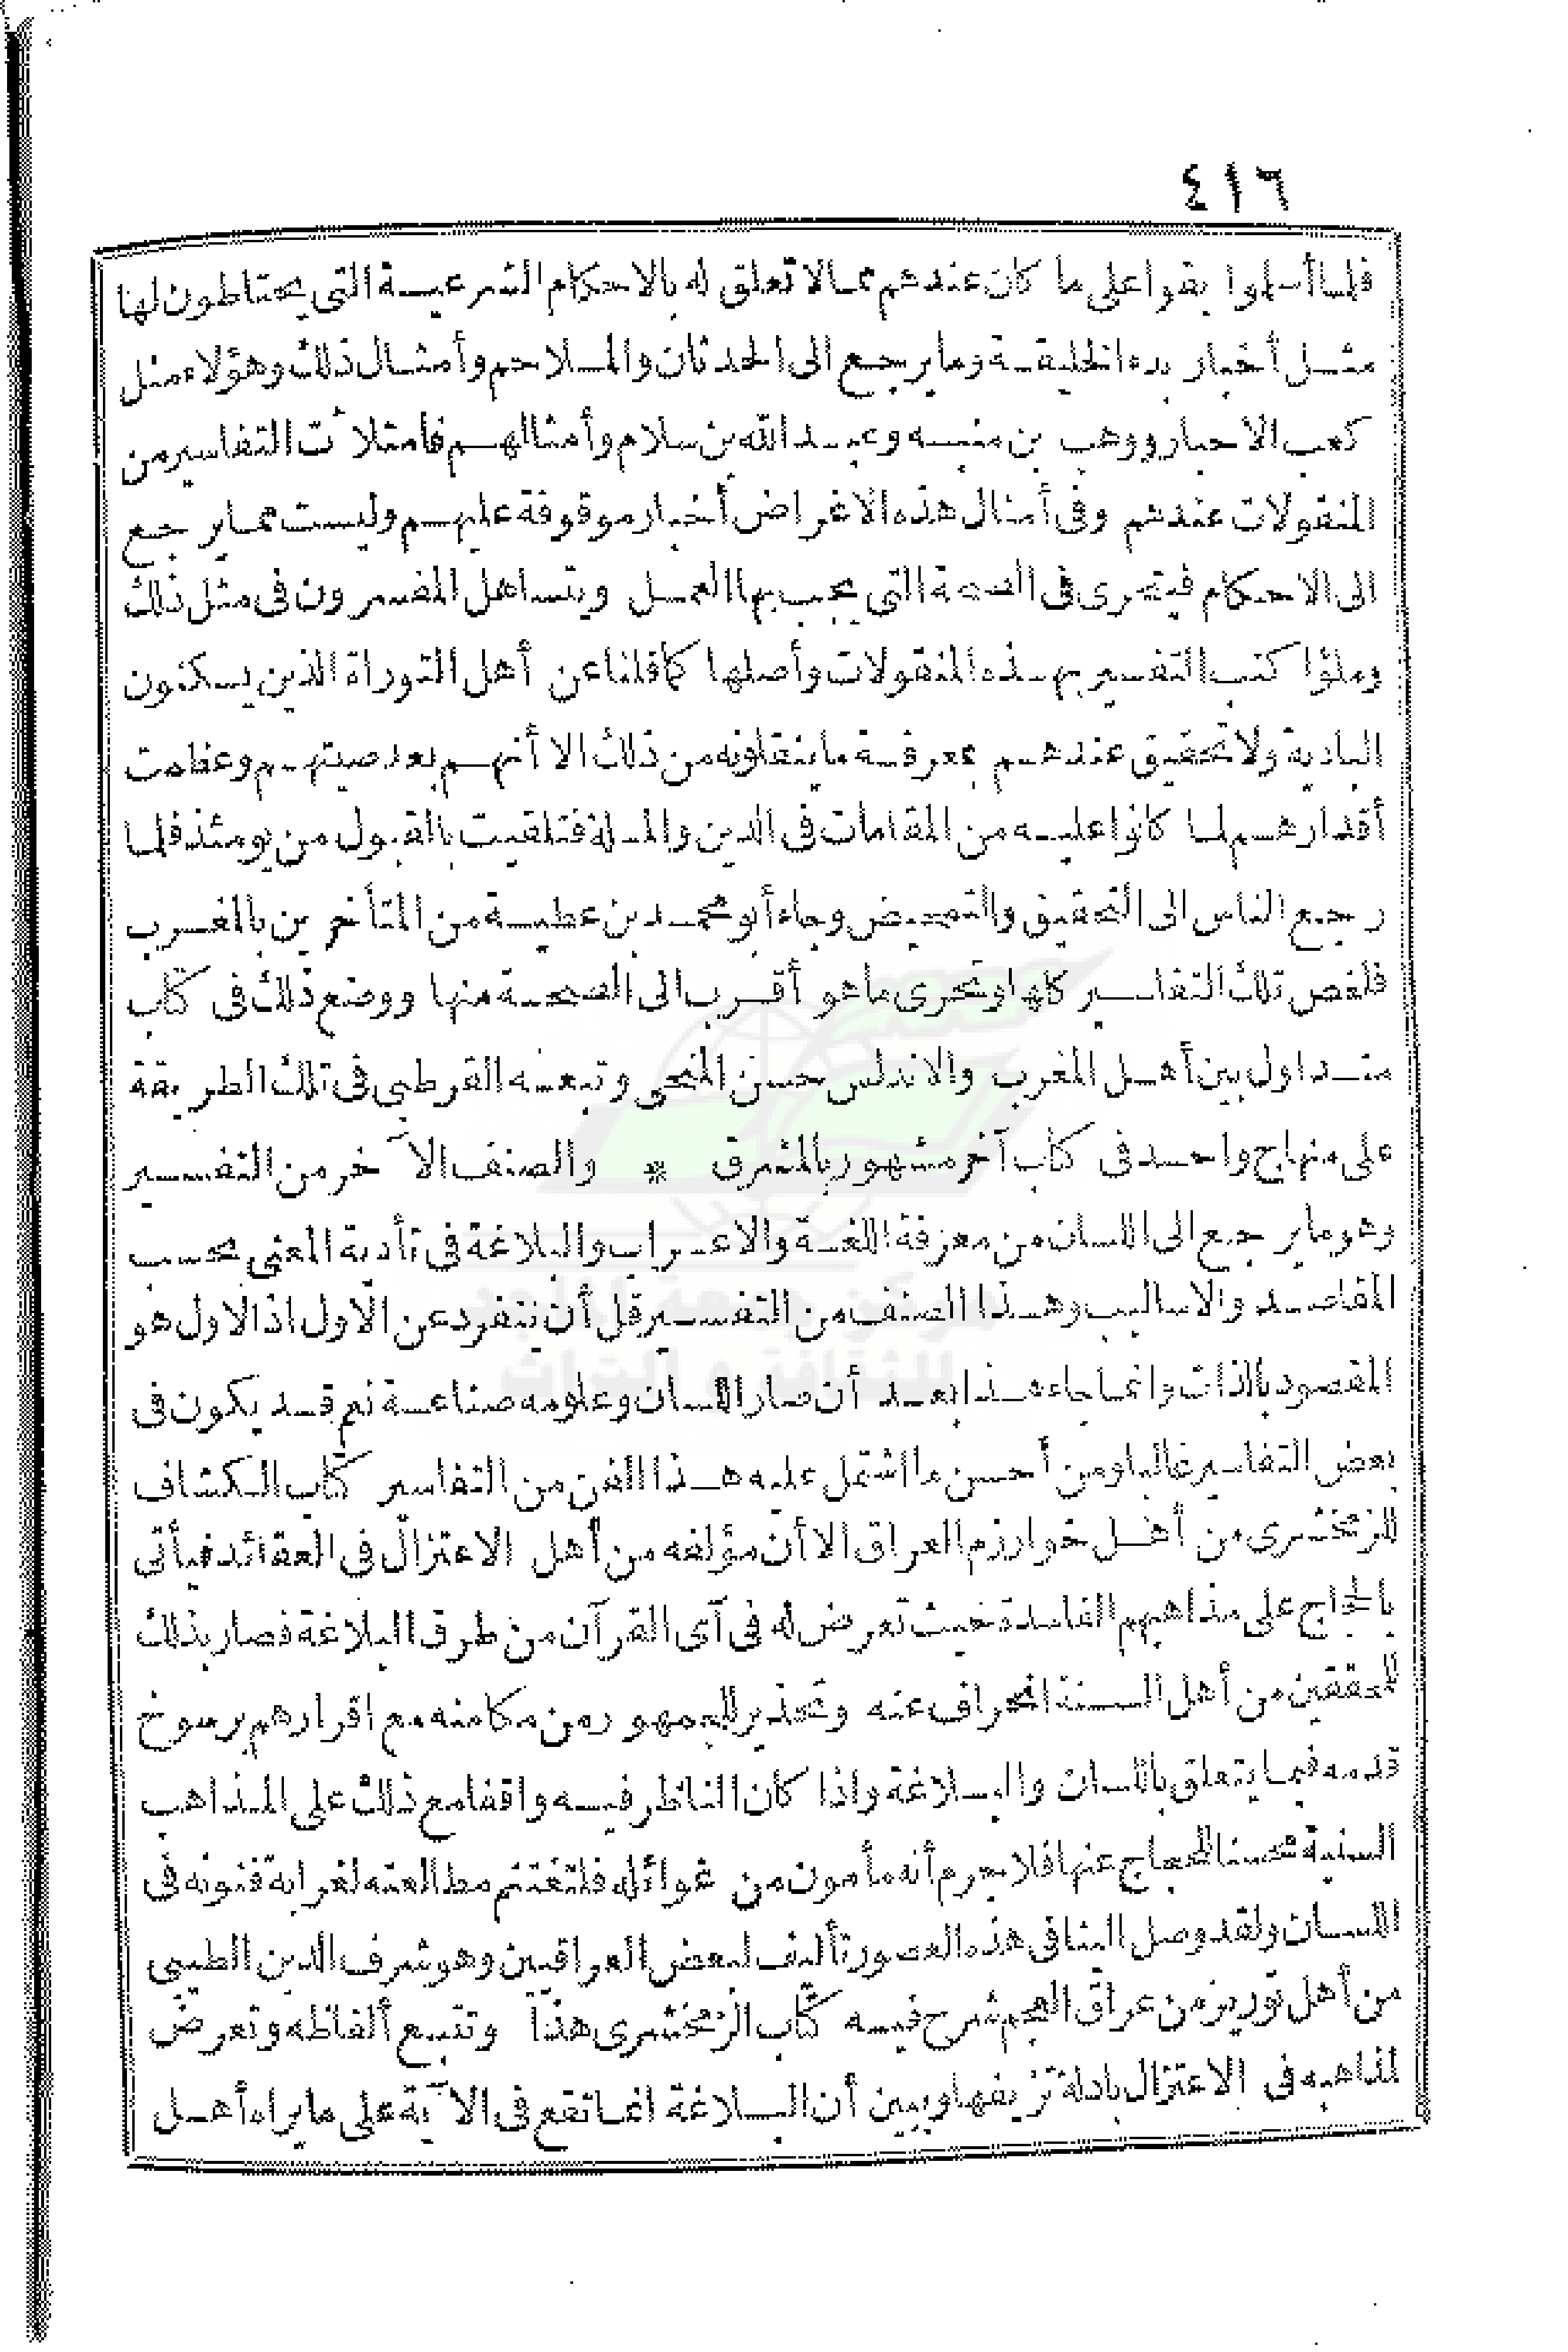 ٤١٦
فلما أسلموا بقوا على ما كان عندهم مما لا تعلق له بالاحكام الشرعية التى يحتاطون لها
مثل أخبار بدء الخليقة وما يرجع الى الحدثان والملاحم وأمثال ذلك وهؤلاء مثل
كعب الاحبار ووهب بن منبه وعبد الله بن سلام وأمثالهم فامتلأت التفاسير من
المنقولات عندهم وفى أمثال هذه الاغراض أخبار موقوفة عليهم وليست مما يرجع
الى الاحكام فيتحرى فى الصحة التى يجب بها العمل ويتساهل المفسرون فى مثل ذلك
وملؤا كتب التفسير بهذه المنقولات وأصلها كما قلنا عن أهل التوراة الذين يسكنون
البادية ولا تحقيق عندهم بمعرفة ما ينقلونه من ذلك الا أنهم بعد صيتهم وعظمت
أقدارهم لما كانوا عليه من المقامات فى الدين والملة فتلقيت بالقبول من يومئذ فلما
رجع الناس الى التحقيق والتمحيص وجاء أبو محمد بن عطية من المتأخرين بالمغرب
فلخص تلك التفاسير كلها وتحرى ما هو أقرب الى الصحة منها ووضع ذلك فى كتاب
متداول بين أهل المغرب والاندلس حسن المنحى وتبعه القرطبى فى تلك الطريقة
على منهاج واحد فى كتاب آخر مشهور بالمشرق * والصنف الآخر من التفسير
وهو ما يرجع الى اللسان من معرفة اللغة والاعراب والبلاغة فى تأدية المعنى بحسب
المقاصد والاساليب وهذا الصنف من التفسير قل أن ينفرد عن الاول اذ الاول هو
المقصود بالذات وانما جاء هذا بعد أن صار اللسان وعلومه صناعة نعم قد يكون فى
بعض التفاسير غالبا ومن أحسن ما اشتمل عليه هذا الفن من التفاسير كتاب الكشاف
للزمخشرى من أهل خوارزم العراق الا أن مؤلفه من أهل الاعتزال فى العقائد فيأتى
بالحجاج على مذاهبهم الفاسدة حيث تعرض له فى آى القرآن من طرق البلاغة فصار بذلك
للمحققين من أهل السنة انحراف عنه وتحذير للجمهور من مكامنه مع اقرارهم برسوخ
قدمه فيما يتعلق باللسان والبلاغة واذا كان الناظر فيه واقفا مع ذلك على المذاهب
السنية محسنا للحجاج عنها فلا جرم أنه مأمون من غوائله فلتغتنم مطالعته لغرابة فنونه فى
اللسان ولقد وصل الينا فى هذه العصور تأليف لبعض العراقيين وهو شرف الدين الطيبى
من أهل توريز من عراق العجم شرح فيه كتاب الزمخشرى هذا وتتبع ألفاظه وتعرض
لمذاهبه فى الاعتزال بادلة تزيفها ويبين أن البلاغة انما تقع فى الآية على ما يراه أهل
مركز جمعة الماجد
للثقافة و التراث